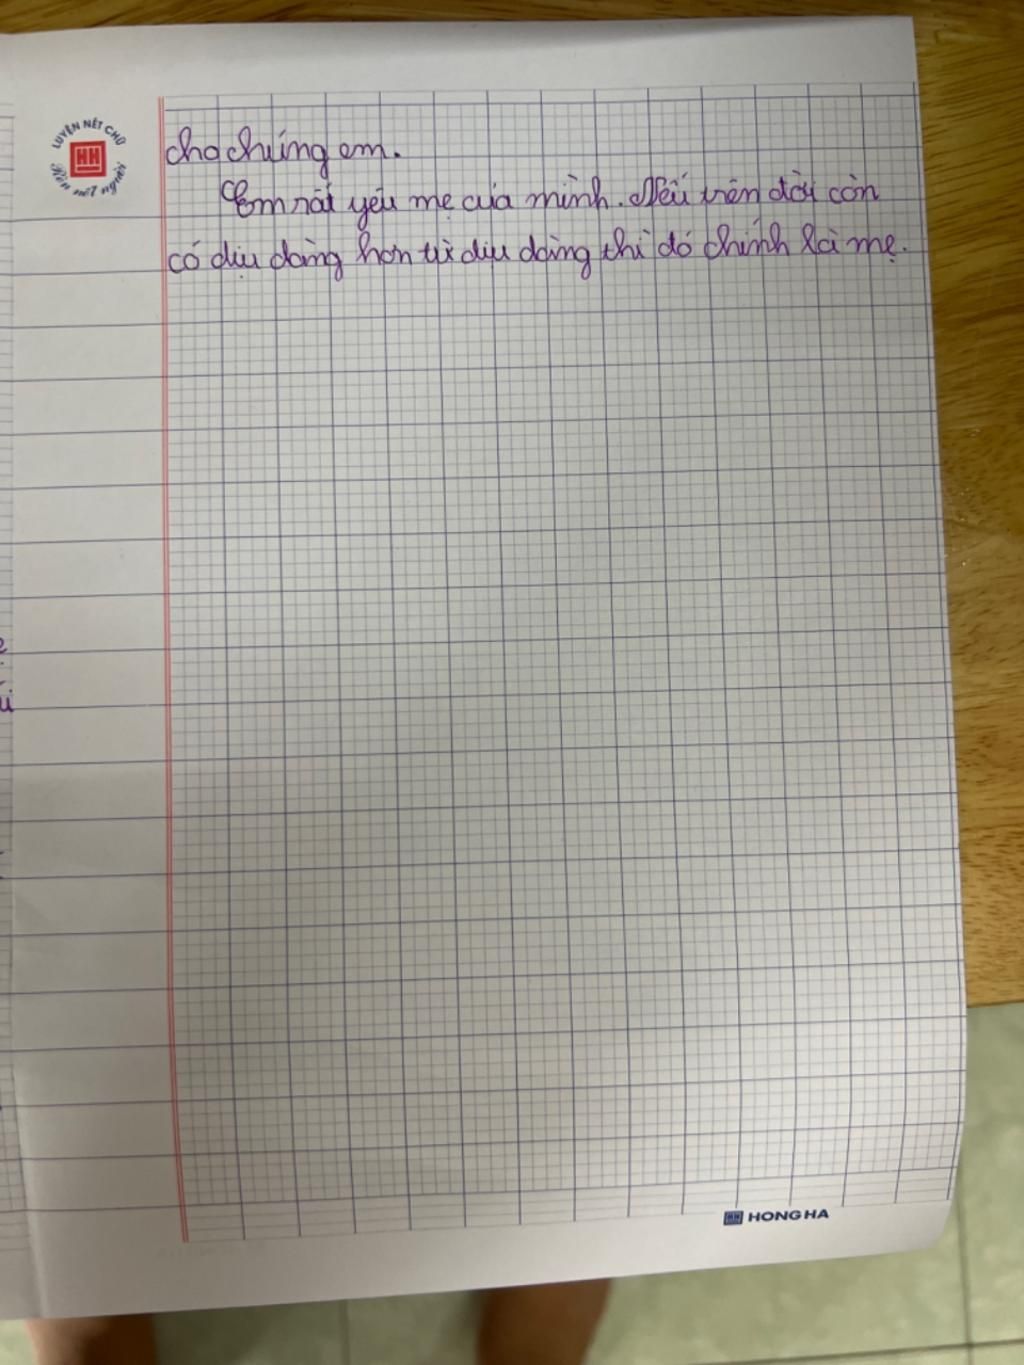 LUYỆN NÉT CHỮ
HH
Rèn nết người
cho chúng em.
Em rất yêu mẹ của mình. Nếu trên đời còn
có dịu dàng hơn từ dịu dàng thì đó chính là mẹ.
HH HONG HA